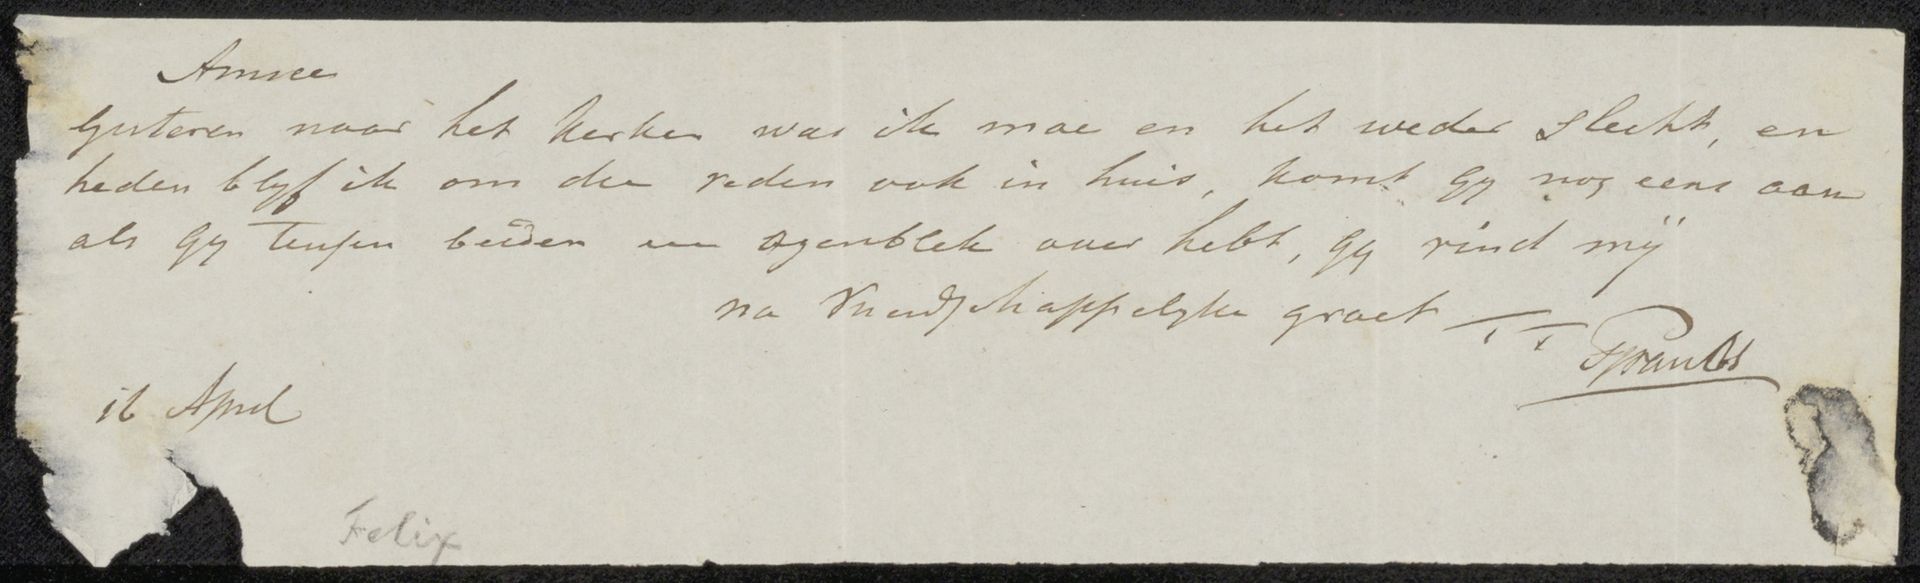 Amice
Gisteren naar het kerken was ik moe en het weder slecht, en
heden blyf ik om die reden ook in huis, komt gy nog eens aan
als gy beiden een ogenblik over hebt, gy vind mij
na Vriendschappelyke groet TT
16 April
Felix